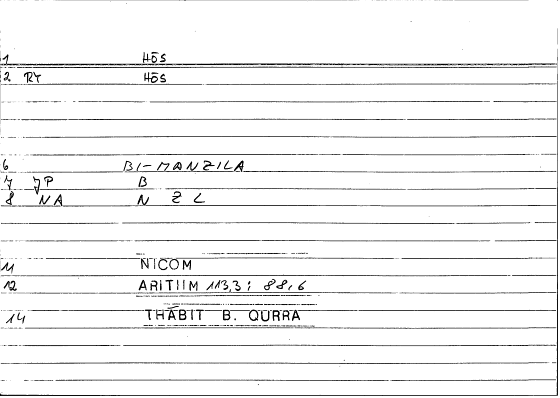 1 HŌS
2 RT HŌS
6 BI-MANZILA
7 JP B
8 NA N Z L
11 NICOM
12 ARITIIM 113,3; 88,6
14 THĀBIT B. QURRA